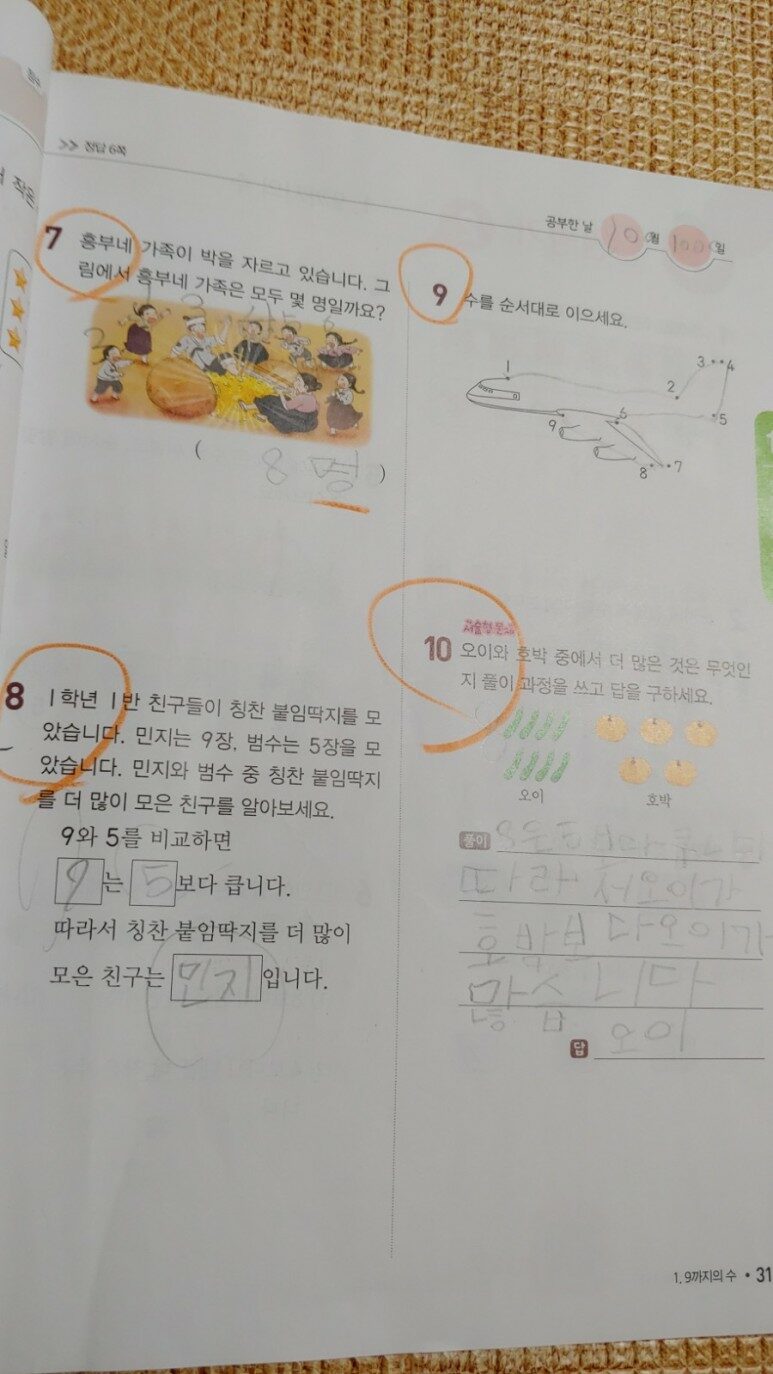 >> 정답 6쪽
공부한 날 10월 100일
7 흥부네 가족이 박을 자르고 있습니다. 그
림에서 흥부네 가족은 모두 몇 명일까요?
( 8 명 )
8 1학년 1반 친구들이 칭찬 붙임딱지를 모
았습니다. 민지는 9장, 범수는 5장을 모
았습니다. 민지와 범수 중 칭찬 붙임딱지
를 더 많이 모은 친구를 알아보세요.
9와 5를 비교하면
9는 5보다 큽니다.
따라서 칭찬 붙임딱지를 더 많이
모은 친구는 민지입니다.
9 수를 순서대로 이으세요.
1
2
3
4
5
6
7
8
9
서술형 문제
10 오이와 호박 중에서 더 많은 것은 무엇인
지 풀이 과정을 쓰고 답을 구하세요.
오이 호박
풀이 8은 5
따라서 오이가
호박보다 오이가
많습니다
답 오이
1. 9까지의 수 • 31